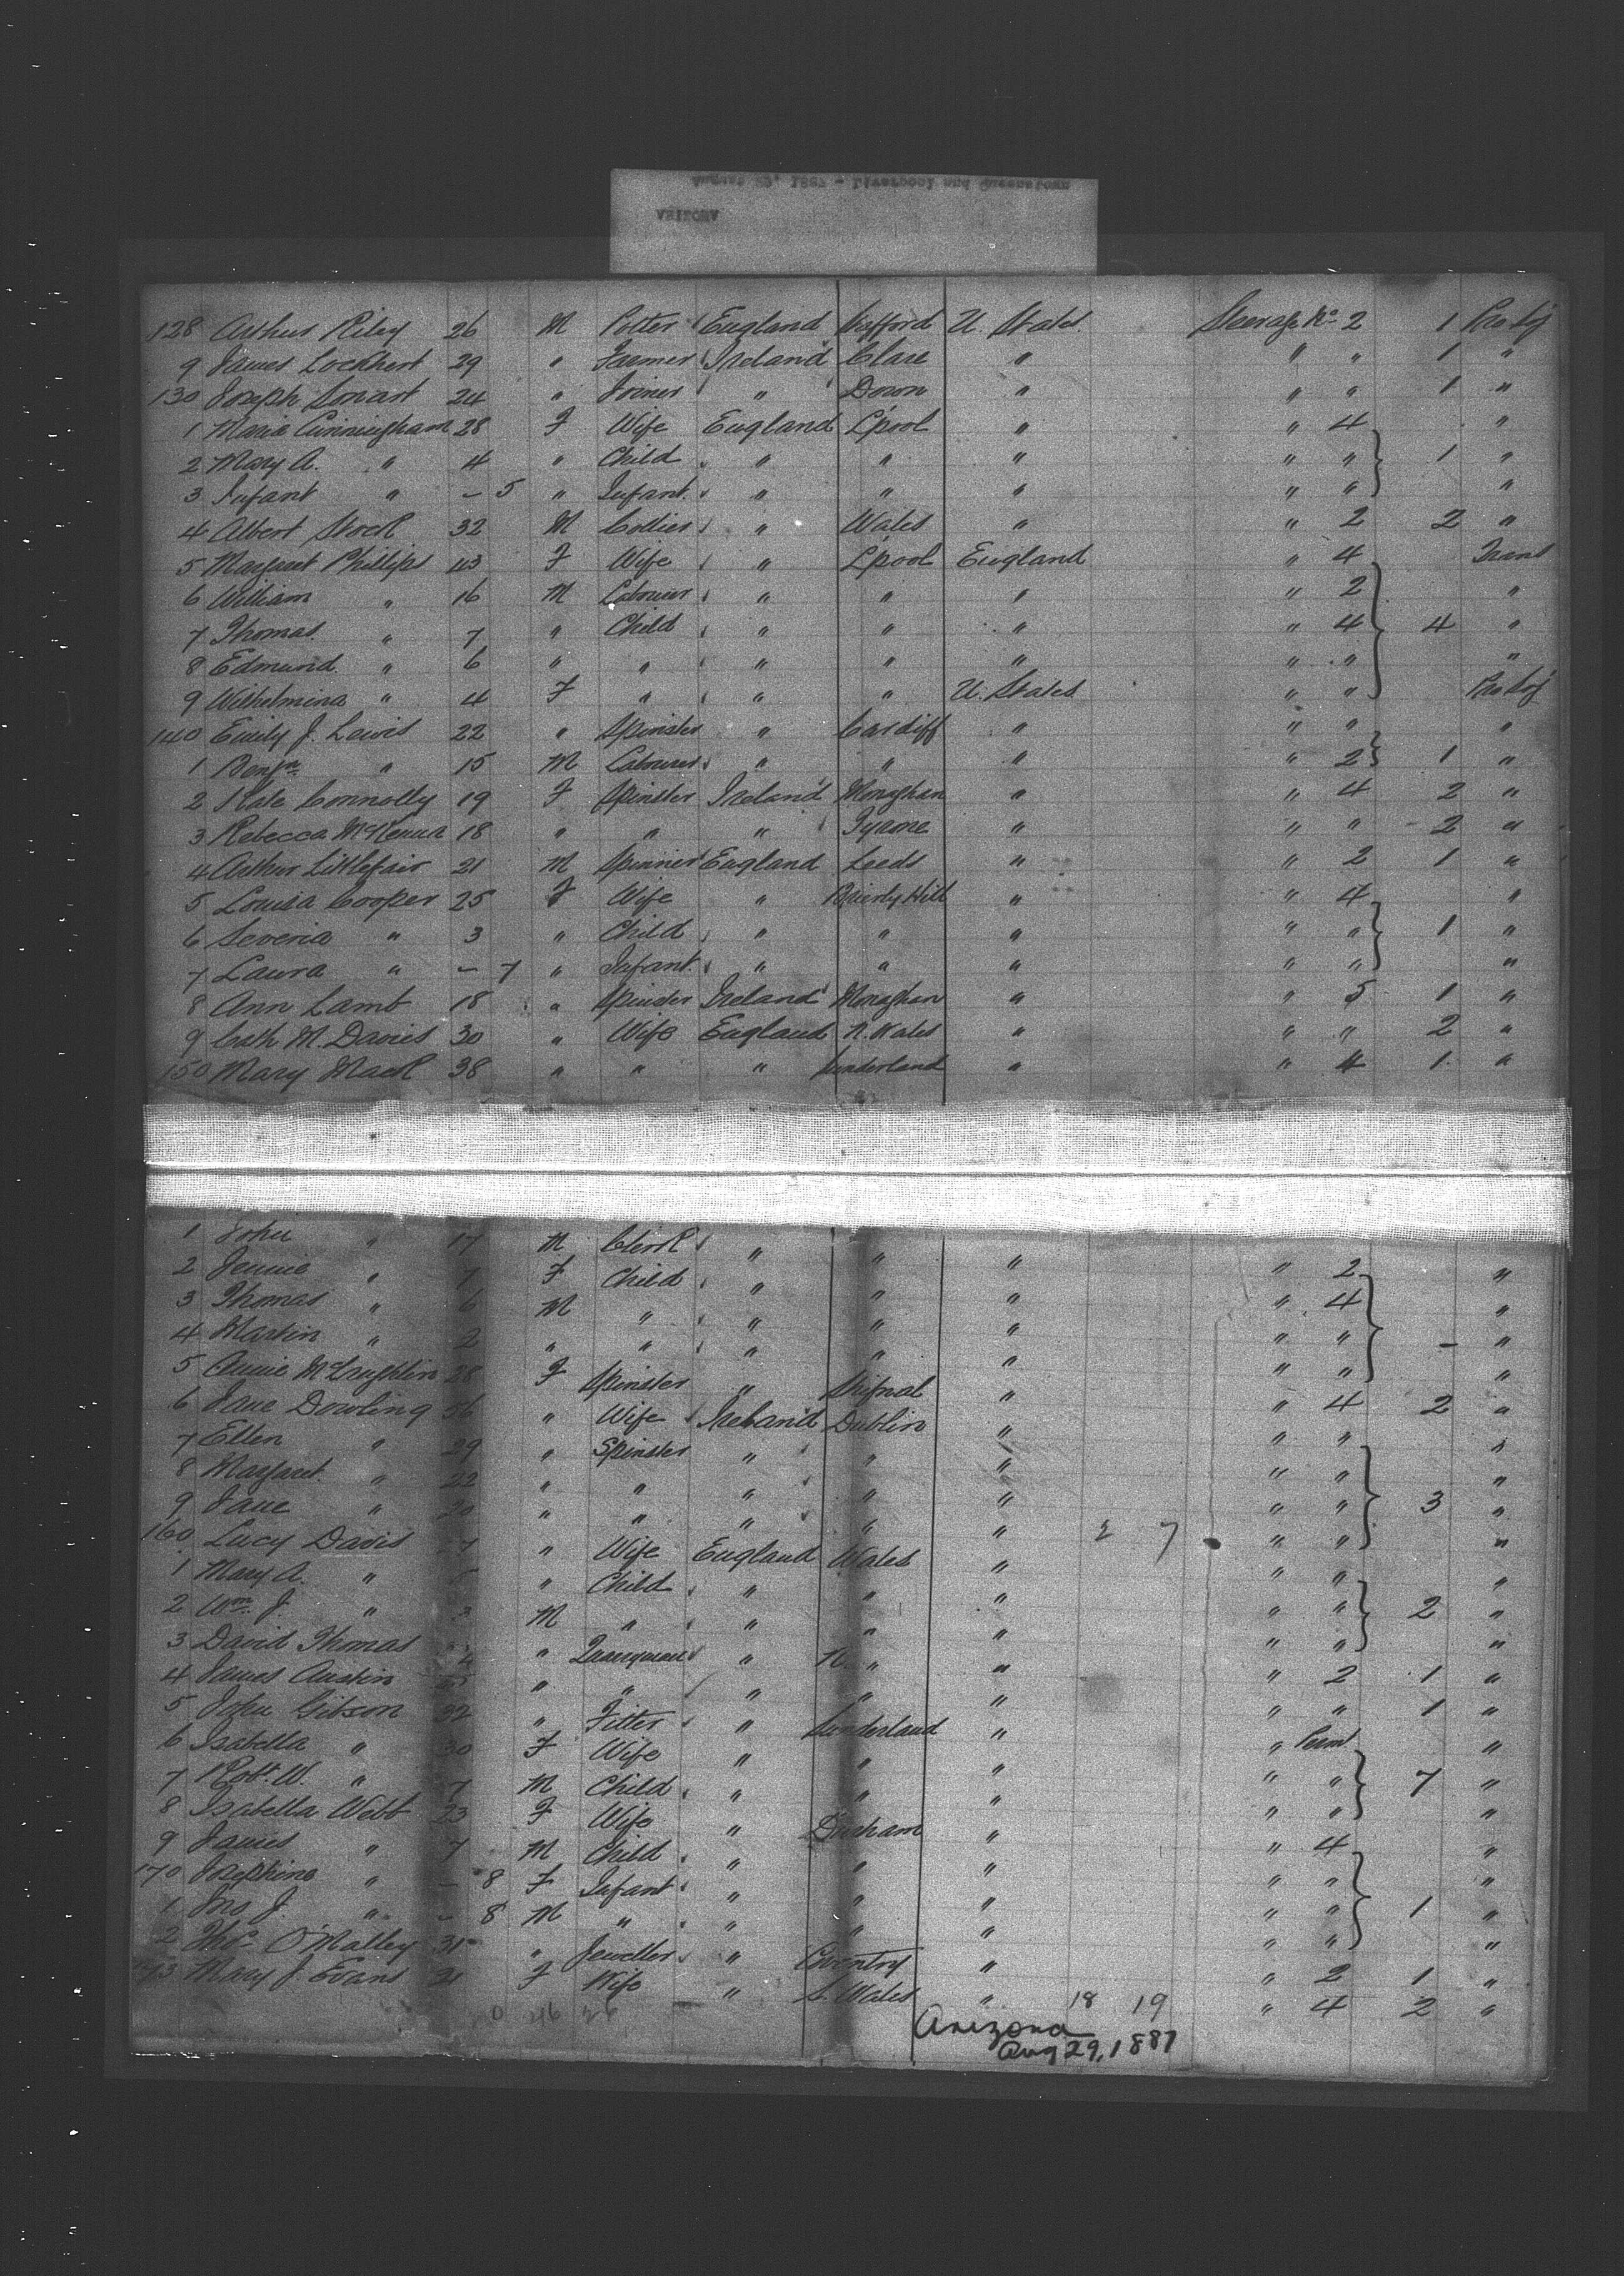 128 Arthur Riley 26 M Potter England Stafford U. States. Steerage No 2 1 Pro Sj
9 James Lockhert 29 " Farmer Ireland Clare " " " 1 "
130 Joseph Smart 24 " Joiner " Down " " " 1 "
1 Maria Cunningham 28 F Wife England L'pool " " 4 "
2 Mary A. " 4 " Child " " " " " 1 "
3 Infant " - 5 " Infant. " " " " " "
4 Albert Stock 32 M Collier " Wales " " 2 2 "
5 Margaret Phillips 43 F Wife " L'pool England " 4 Trans
6 William " 16 M Labourer " " " " 2 "
7 Thomas. " 7 " Child " " " " 4 4 "
8 Edmund. " 6 " " " " " " " "
9 Wilhelmina " 4 F " " " U. States " " Pro Soj
140 Emily J. Lewis 22 " Spinster " Cardiff " " " "
1 Benjn " 15 M Labourer " " " " 2 1 "
2 Kate Connolly 19 F Spinster Ireland Monaghan " " 4 2 "
3 Rebecca McKenna 18 " " " Tyrone " " " 2 "
4 Arthur Littlefair 21 M Spinner England Leeds " " 2 1 "
5 Louisa Cooper 25 F Wife " Brierly Hill " " 4 "
6 Severia " 3 " Child " " " " " 1 "
7 Laura " - 7 " Infant. " " " " " "
8 Ann Lamb 18 " Spinster Ireland Monaghan " " 5 1 "
9 Cath M. Davies 30 " Wife England N. Wales " " " 2 "
150 Mary Mack 38 " " " Sunderland " " 4 1. "
1 John " 17 M Clerk " " " " 2 "
2 Jennie " 7 F Child " " " " 4 "
3 Thomas " 6 M " " " " " " - "
4 Martin " 2 " " " " " " " "
5 Annie McLaughlin 28 F Spinster " Shifnal " " 4 2 "
6 Jane Dowling 56 " Wife Ireland Dublin " " " "
7 Ellen " 29 " Spinster " " " " " "
8 Margaret " 22 " " " " " " " 3 "
9 Jane " 20 " " " " " 2 7 " " "
160 Lucy Davis 27 " Wife England Wales " " " "
1 Mary A. " " Child " " " " " 2 "
2 Wm. J. " 3 M " " " " " " "
3 David Thomas " Quarryman " N. " " " 2 1 "
4 James Austin " " " " " " " 1 "
5 John Gibson 32 " Fitter " Sunderland " " Perm "
6 Isabella " 30 F Wife " " " " " 7 "
7 Robt. W. " 7 M Child " " " " " "
8 Isabella Webb 23 F Wife " Durham " " 4 "
9 James " 7 M Child " " " " " "
170 Josephine " - 8 F Infant " " " " " 1 "
1 Jno J. " - 8 M " " " " " " "
2 Thos. O'Malley 31 " Jeweller " Coventry " " 2 1 "
173 Mary J. Evans 21 F Wife " S. Wales " " 4 2 "
0 46 26 18 19
Arizona
Aug 29, 1887